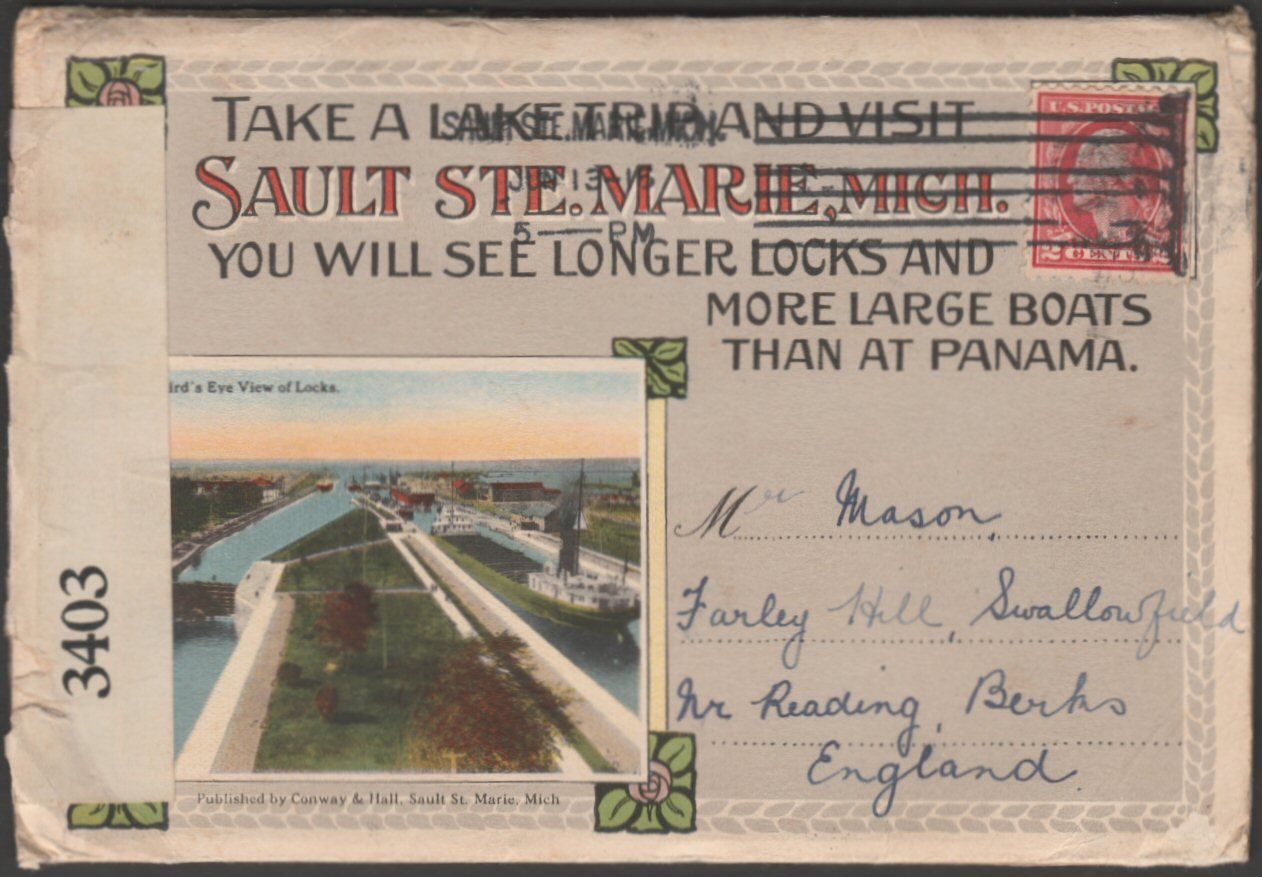 TAKE A LAKE TRIP AND VISIT
SAULT STE. MARIE, MICH.
YOU WILL SEE LONGER LOCKS AND
MORE LARGE BOATS
THAN AT PANAMA.
SAULT STE. MARIE, MICH.
JUN 13
5 PM
U.S. POSTAGE
2 CENTS 2
ird's Eye View of Locks.
Mr Mason,
Farley Hill, Swallowfield
Nr Reading, Berks
England.
3403
Published by Conway & Hall, Sault St. Marie, Mich